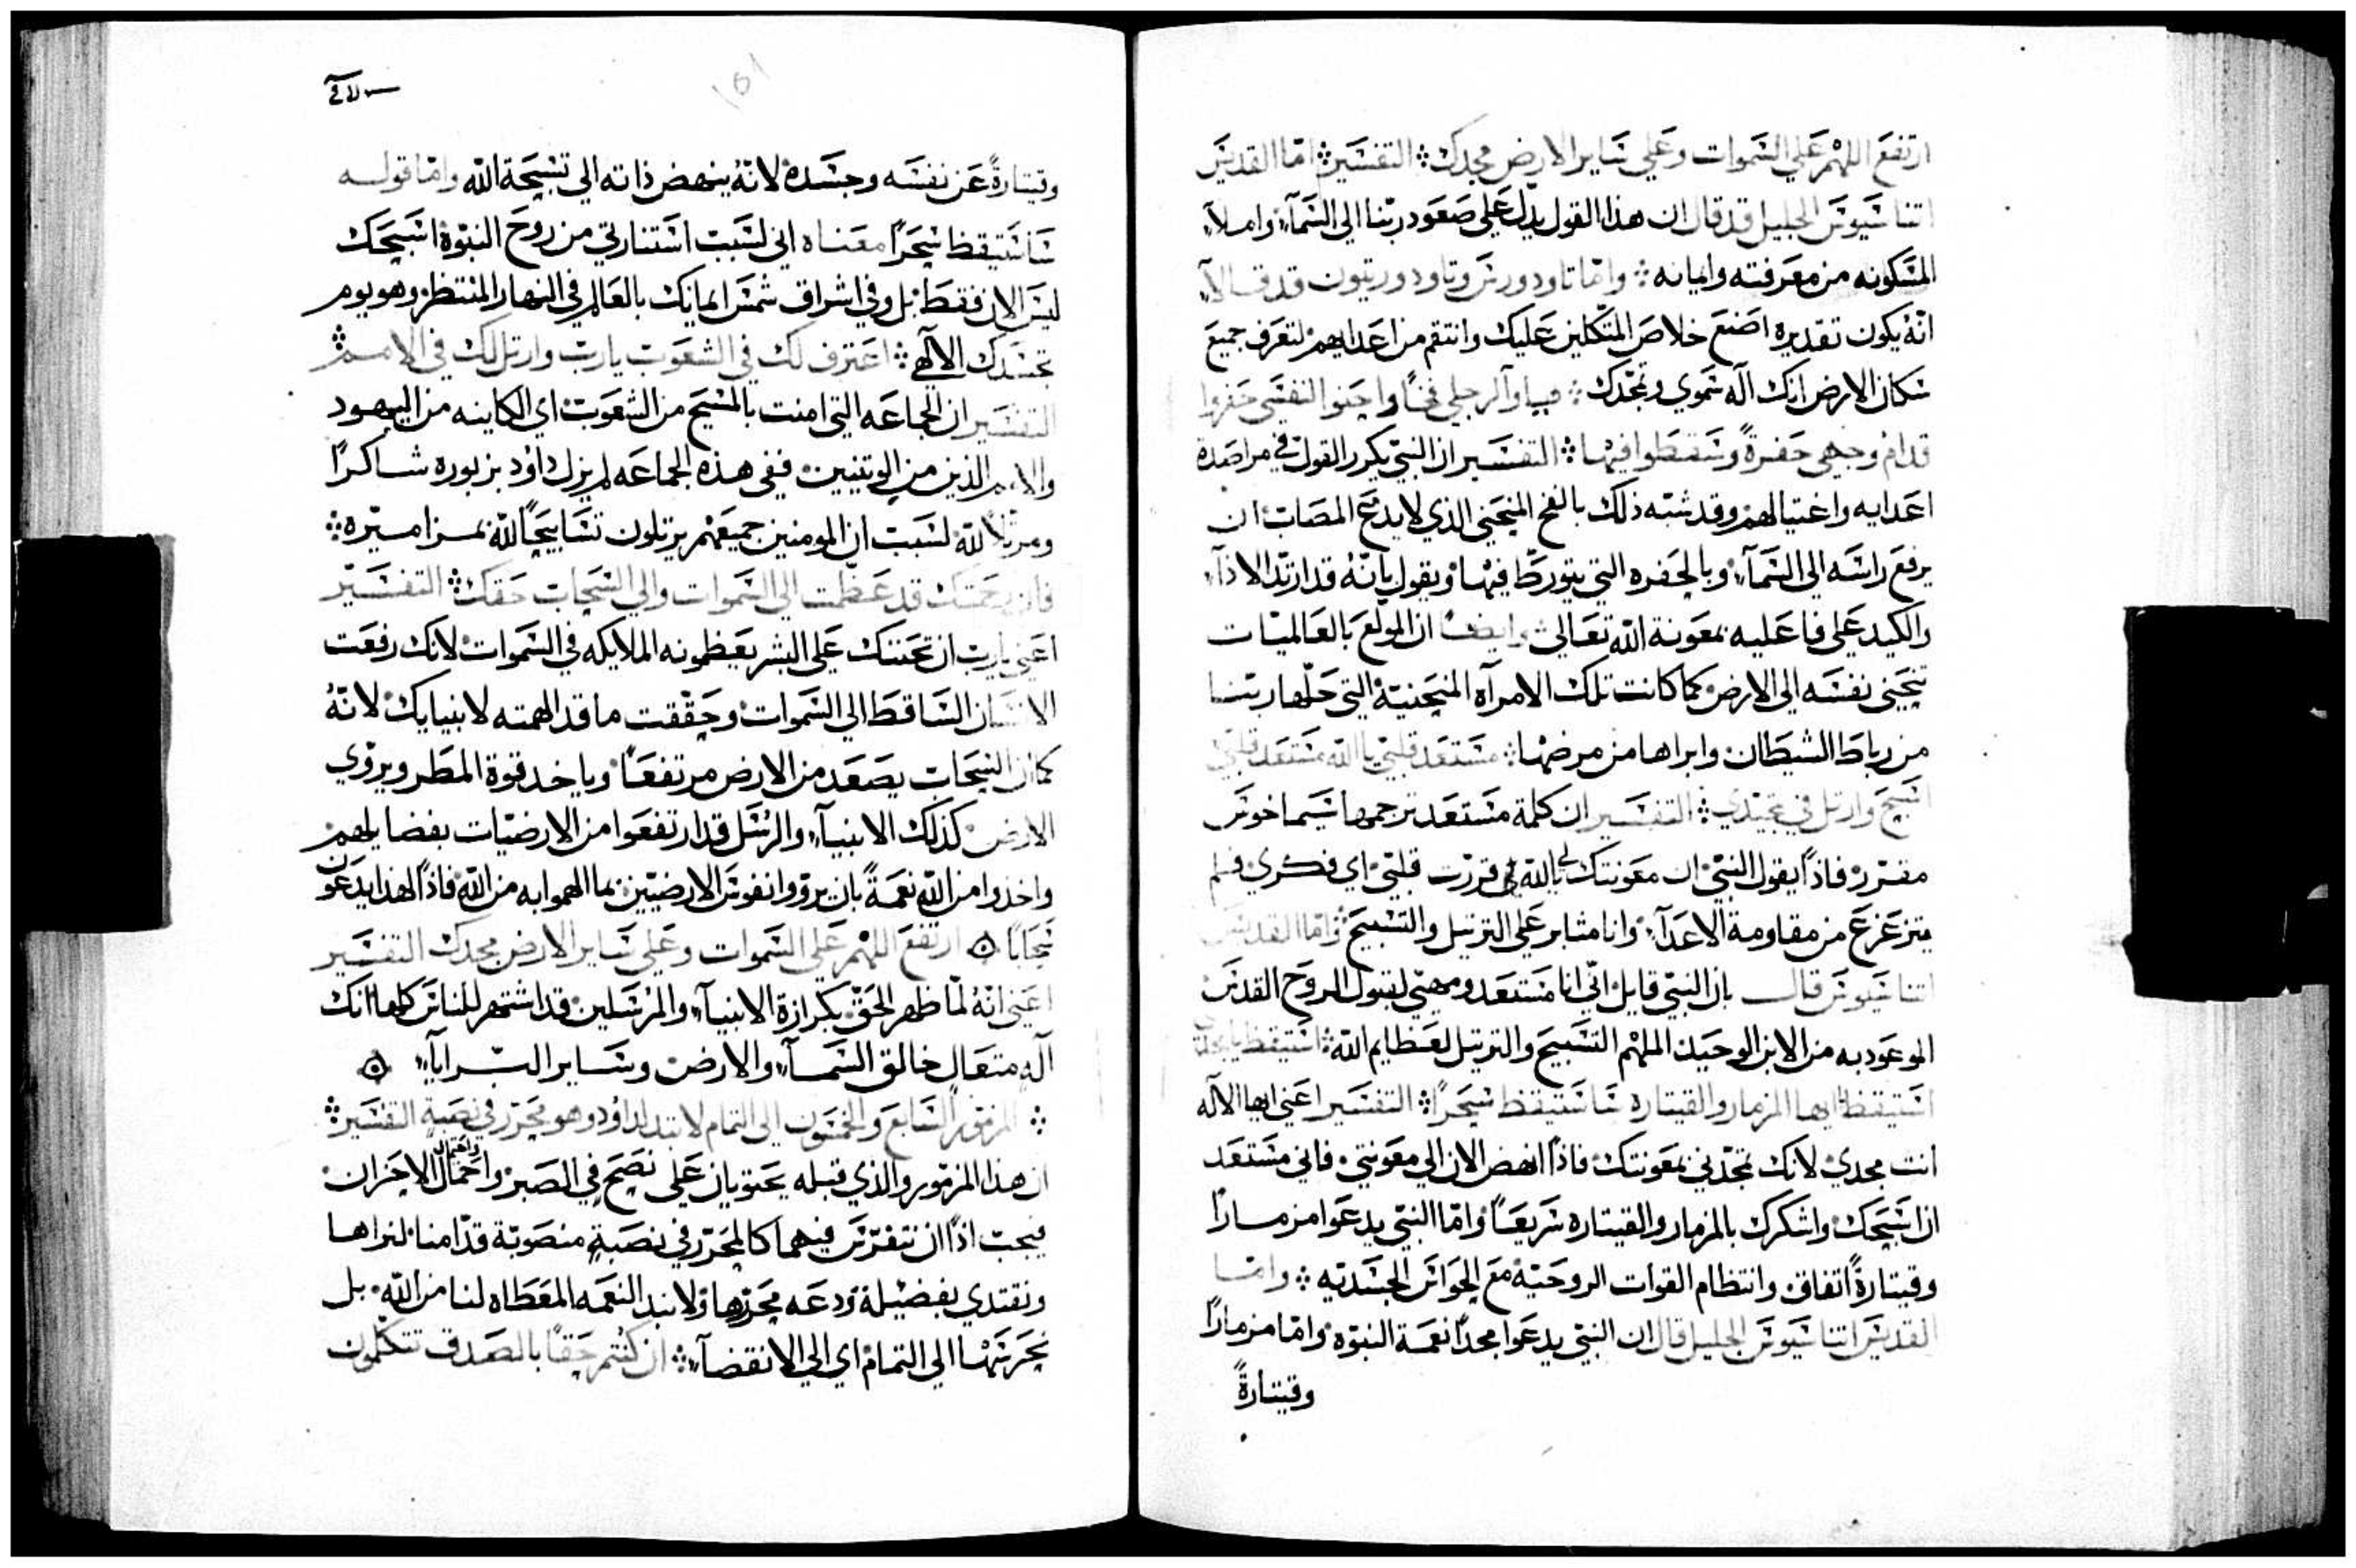 ارتفع اللهم على السموات وعلى ساير الارض مجدك ۞ التفسير ۞ امّا القديس
اتناسيوس الجليل قد قال ان هذا القول يدلّ على صعود ربّنا الى السمآء وامـلآء
المسكونه من معرفته وايمانه ۞ وامّا تاودورس وتاودوريتون قد قـالآ
انّهُ يكون تقديره اصنع خلاص المتّكلين عليك وانتقم من اعدايهم لتعرف جميع
سكان الارض انك آله سموي ونمجّدك ۞ هيـاوآ لرجلي فخـًا واحنوا نفسي حفروا
قدام وجهي حفرةً وسقطوا فيها ۞ التفسـير ان النبي يكرر القول في مراصدة
اعدايه واغتيالهم وقد شبّه ذلك بالفخ المنحني الذي لا يدع المصاب ان
يرفع راسه الى السمآء وبالحفره التي يتورطّ فيها ويقول بانّهُ قد ارتدّ الاذآء
والكيد على فاعليه بمعونة الله تعالى وايضـًا ان المولّع بالعالميـات
تنحني نفسه الى الارض كما كانت تلك الامرآه المنحنيّة التي حلّها ربّنـا
من رباط الشيطان وابراها من مرضها ۞ مستعد قلبي يا الله مستعد قلبي
اسبح وارتل في تمجيدي ۞ التفسـير ان كلمة مستعد ترجمها سيماخوس
مقـرّر فاذًا يقول النبيّ ان معونتك لي يا الله قررّت قلبي اي فكـري فـلم
يتزعزع من مقاومة الاعدآء وانا مثابر على الترتيل والتسبيح وامّا القديس
اتناسيوس قالـــ بان النبي قايل انّي انا مستعد ومهيّ لقبول الروح القدس
الموعود به من الابن الوحيد الملهم التسبيح والترتيل لعظايم الله ۞ استيقظ يا مجدي
استيقظ ايها المزمار والقيتاره سَاستيقظ سَحرًا ۞ التفسير اعني ايها الآله
انت مجدي لانك تمجّدني بمعونتك فاذًا انهض الان الى معونتي فاني مستعد
ان اسبحك واشكرك بالمزمار والقيتاره سريعـًا وامّا النبي يدعوا مزمـارًا
وقيتارةً اتفاق وانتظام القوات الروحيّة مع الحواس الجسديّه ۞ وامّـا
القديس اتناسيوس الجليل قال ان النبي يدعوا مجدًا نعمـة النبوّه وامّا مزمارًا
وقيتارةً
وقيتارةً عن نفسه وجسده لانّهُ ينهض ذاته الى تسبحة الله وامّا قولـــه
سَاستيقظ سحرًا معناه اني لسبب استنارتي من روح النبوّة اسبحك
ليس الان فقط بل وفي اشراق شمس ايمانك بالعالم في النهار المنتظر وهو يوم
تجسدك الآلهي ۞ اعترف لك في الشعوب يا ربّ وارتل لك في الامـم ۞
التفسير ان الجماعه التي امنت بالمسيح من الشعوب اي الكاينه من اليهود
والامم الذين من الوثنيين ففي هذه الجماعه لم يزل داوُد بزبوره شـاكرًا
ومرتّلاً لله لسبب ان المومنين جميعهم يرتلون تسَابيحًا لله بمزاميره ۞
فان رحمتك قد عظّمت الى السموات والى السحاب حقك ۞ التفسـير
اعني يا ربّ ان تحننك على البشر يعظمونه الملايكه في السموات لانك رفعت
الانسان الساقط الى السموات وحقّقت ما قد الهمته لانبيايك لانّهُ
كما ان السحاب يصعد من الارض مرتفعـًا وياخد قوة المطر ويروّي
الارض كذلك الانبيآء والرسل قد ارتفعوا من الارضيّات بفضايلهم
واخذوا من الله نعمـةً بان يرووا نفوس الارضيّين بما الهموا به من الله فاذًا لهذا يدعون
سحابًا ۞ ارتفع اللهم على السموات وعلى ساير الارض مجدك التفسـير
اعني انّهُ لمّا ظهر الحقّ بكرازة الانبيآء والمرسلين قد اشتهر للناس كلها انك
آله متعال خالق السمـآء والارض وسـاير البـرايآ ۞
۞ المزمور السابع والخمسون الى التمام لا تبد لداوُد وهو محرّر في نصبةٍ التفسير ۞
ان هذا المزمور والذي قبله يحتويان على نصح في الصبر واحتمال الاحزان
فيجب اذًا ان نتفرّس فيهما كالمحرّر في نصبةٍ منصوبّة قدّامنا لنراهـا
ونقتدي بفضيلة ودعـه محرّرها ولا نبد النعمه المعطاه لنا من الله بـل
نحرسَهـا الى التمام اي الى الانقضآء ۞ ان كنتم حقًا بالصدق تتكلّمون